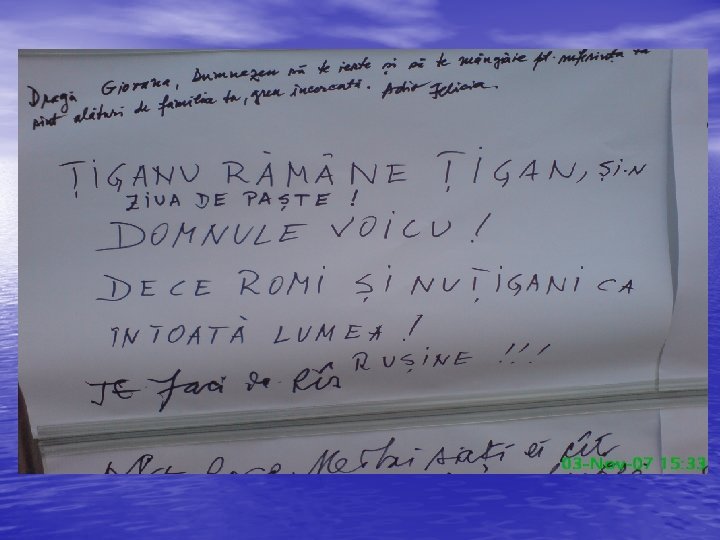 Dragă Giovana, Dumnezeu să te ierte și să te mângâie pt. suferința ta
sînt alături de familia ta, greu încercată. Adio Felicia.
ȚIGANU RĂMÂNE ȚIGAN, ȘI-N
ZIUA DE PAȘTE!
DOMNULE VOICU!
DECE ROMI ȘI NU ȚIGANI CA
ÎNTOATĂ LUMEA!
RUȘINE!!!
TE faci de Rîs
03-Nov-07 15:33